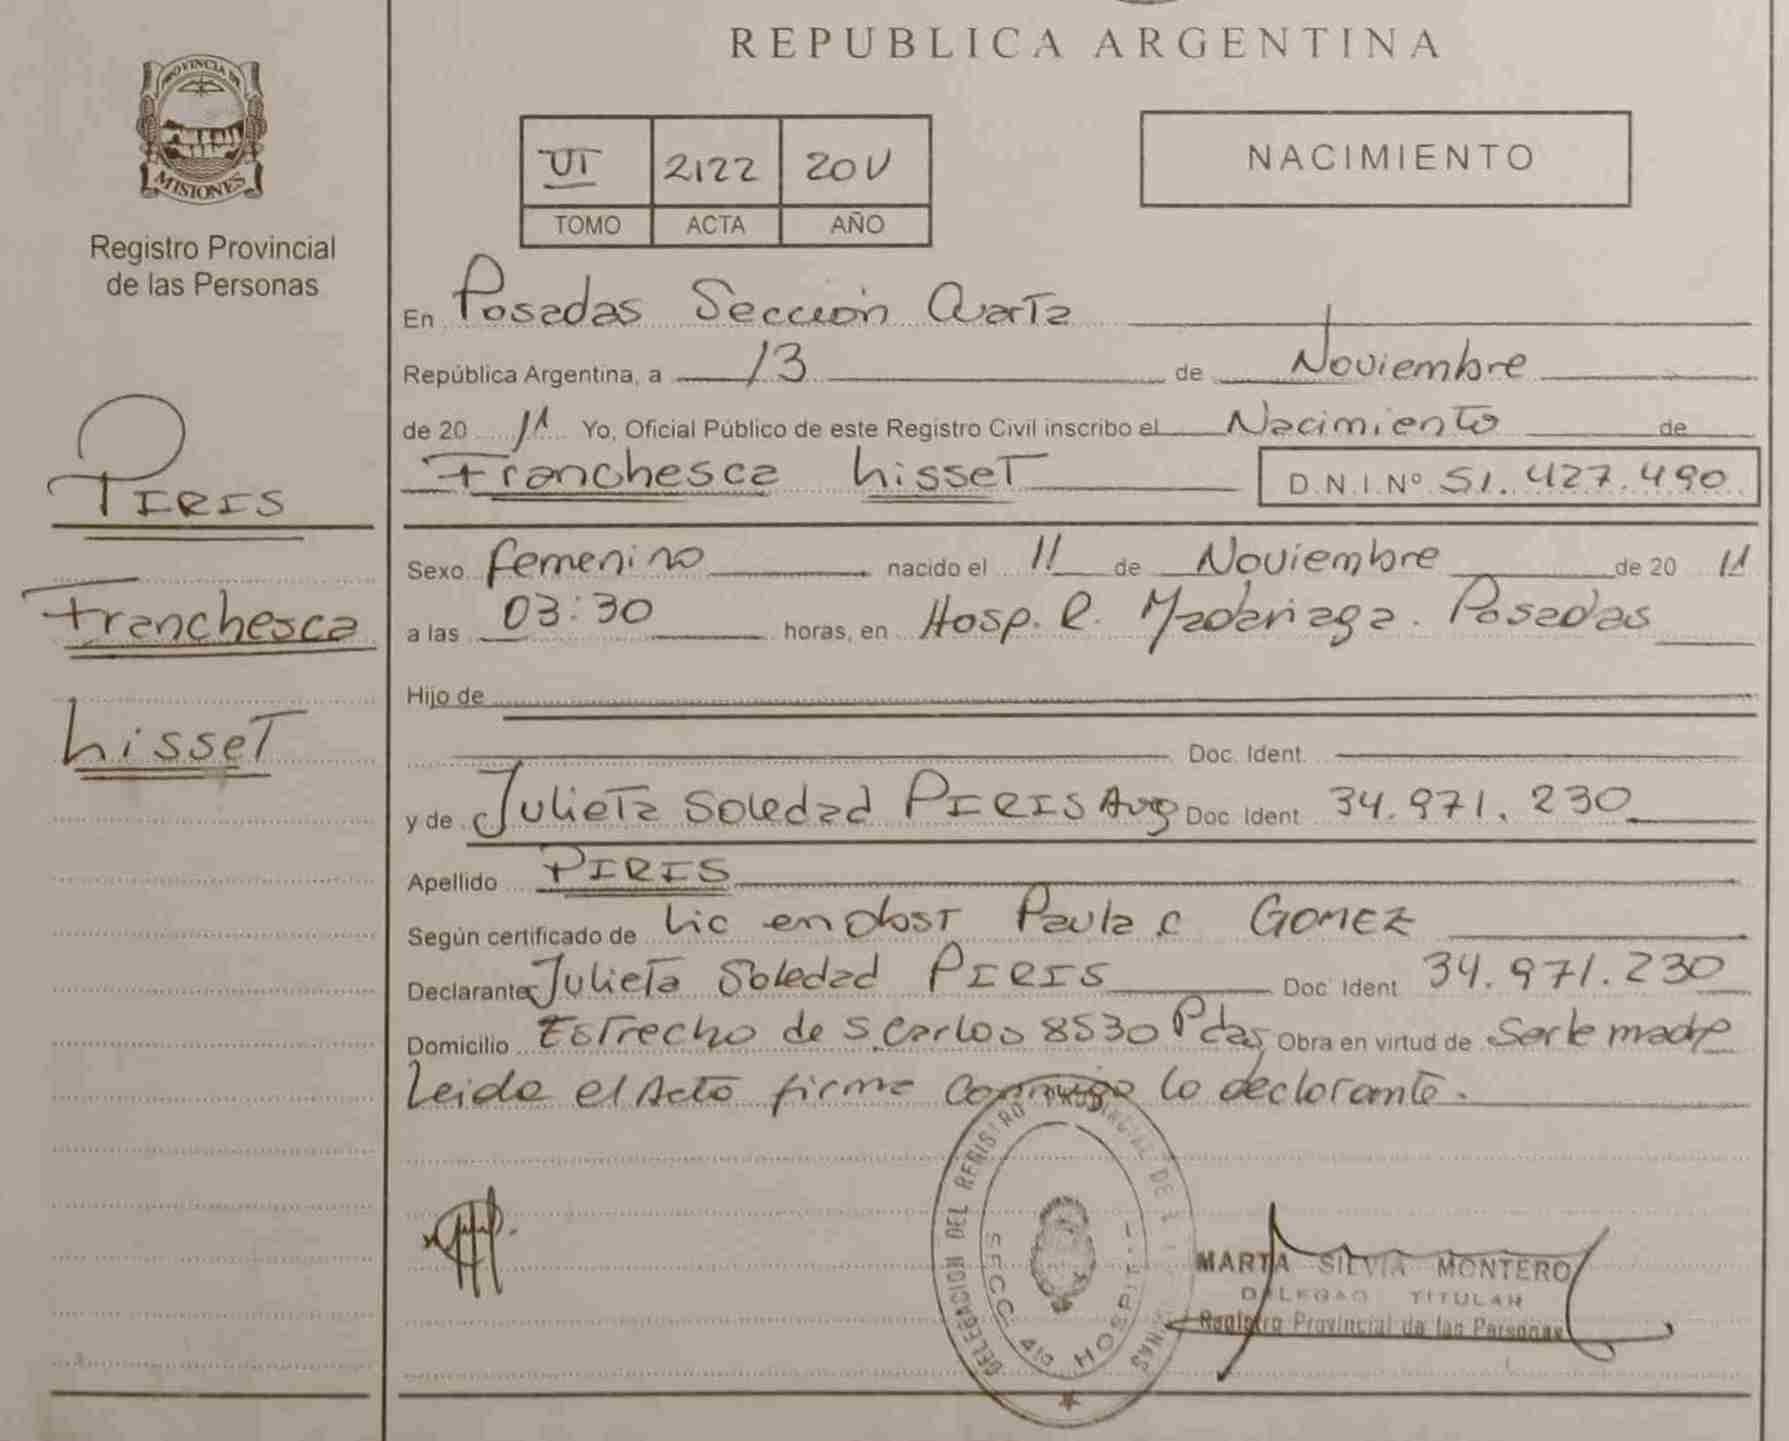 REPUBLICA ARGENTINA
PROVINCIA DE
MISIONES
Registro Provincial
de las Personas
VI 2122 2011
TOMO ACTA AÑO
NACIMIENTO
PIRIS
Franchesca
Lisset
En Posadas Sección Cuarta
República Argentina, a 13 de Noviembre
de 20 11 Yo, Oficial Público de este Registro Civil inscribo el Nacimiento de
Franchesca Lisset D.N.I.Nº 51.427.490
Sexo femenino nacido el 11 de Noviembre de 20 11
a las 03:30 horas, en Hosp. R. Madariaga. Posadas
Hijo de
Doc. Ident.
y de Julieta Soledad PIRIS Arg Doc Ident 34.971.230
Apellido PIRIS
Según certificado de Lic en Obst Paula C GOMEZ
Declarante Julieta Soledad PIRIS Doc Ident 34.971.230
Domicilio Estrecho de S. Carlos 8530 Pdas Obra en virtud de Ser la madre
Leida el Acta firma conmigo la declarante.
DELEGACION DEL REGISTRO PROVINCIAL DE
SECC. 4ta HOSPIT
MARTA SILVIA MONTERO
DELEGAD TITULAR
Registro Provincial de las Personas